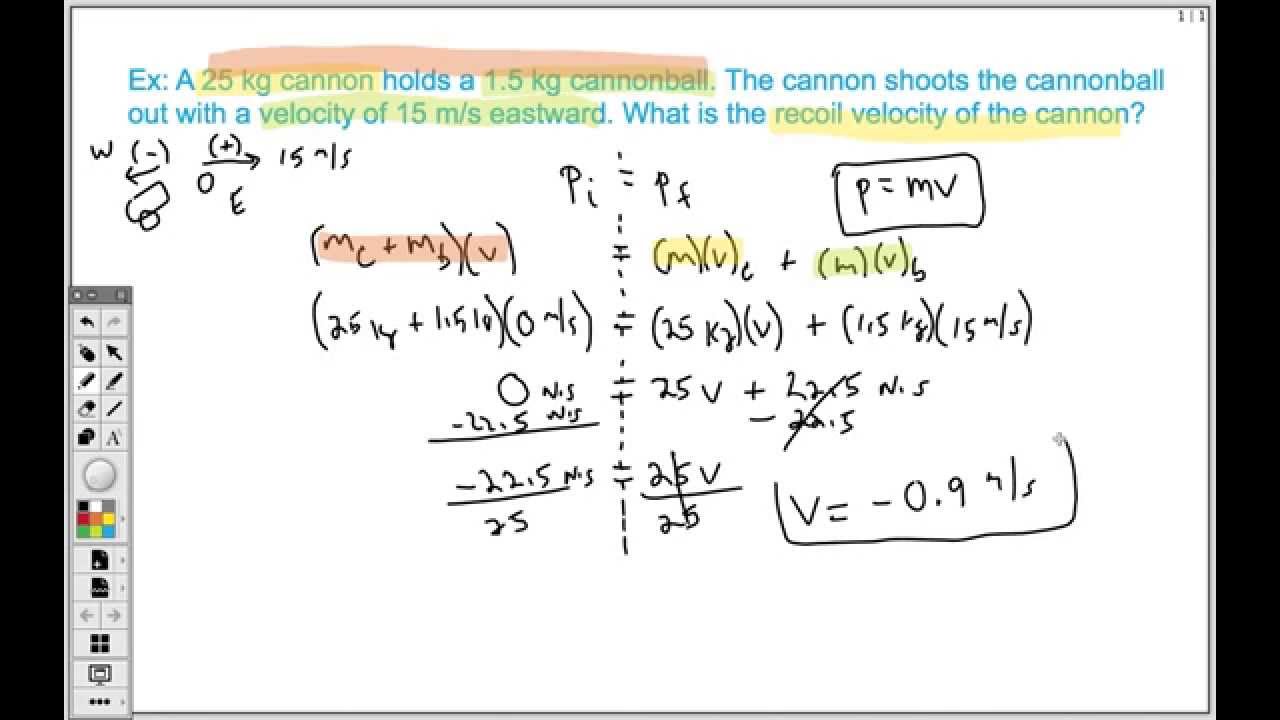 1 | 1
Ex: A 25 kg cannon holds a 1.5 kg cannonball. The cannon shoots the cannonball
out with a velocity of 15 m/s eastward. What is the recoil velocity of the cannon?
W (-) (+) 15 m/s
E
Pi = Pf
P = mv
(mc + mb)(v) = (m)(v)c + (m)(v)b
(25 kg + 1.5 kg)(0 m/s) = (25 kg)(v) + (1.5 kg)(15 m/s)
0 N·s = 25 V + 22.5 N·s
-22.5 N·s - 22.5
-22.5 N·s = 25 V
25 25
V = -0.9 m/s
A